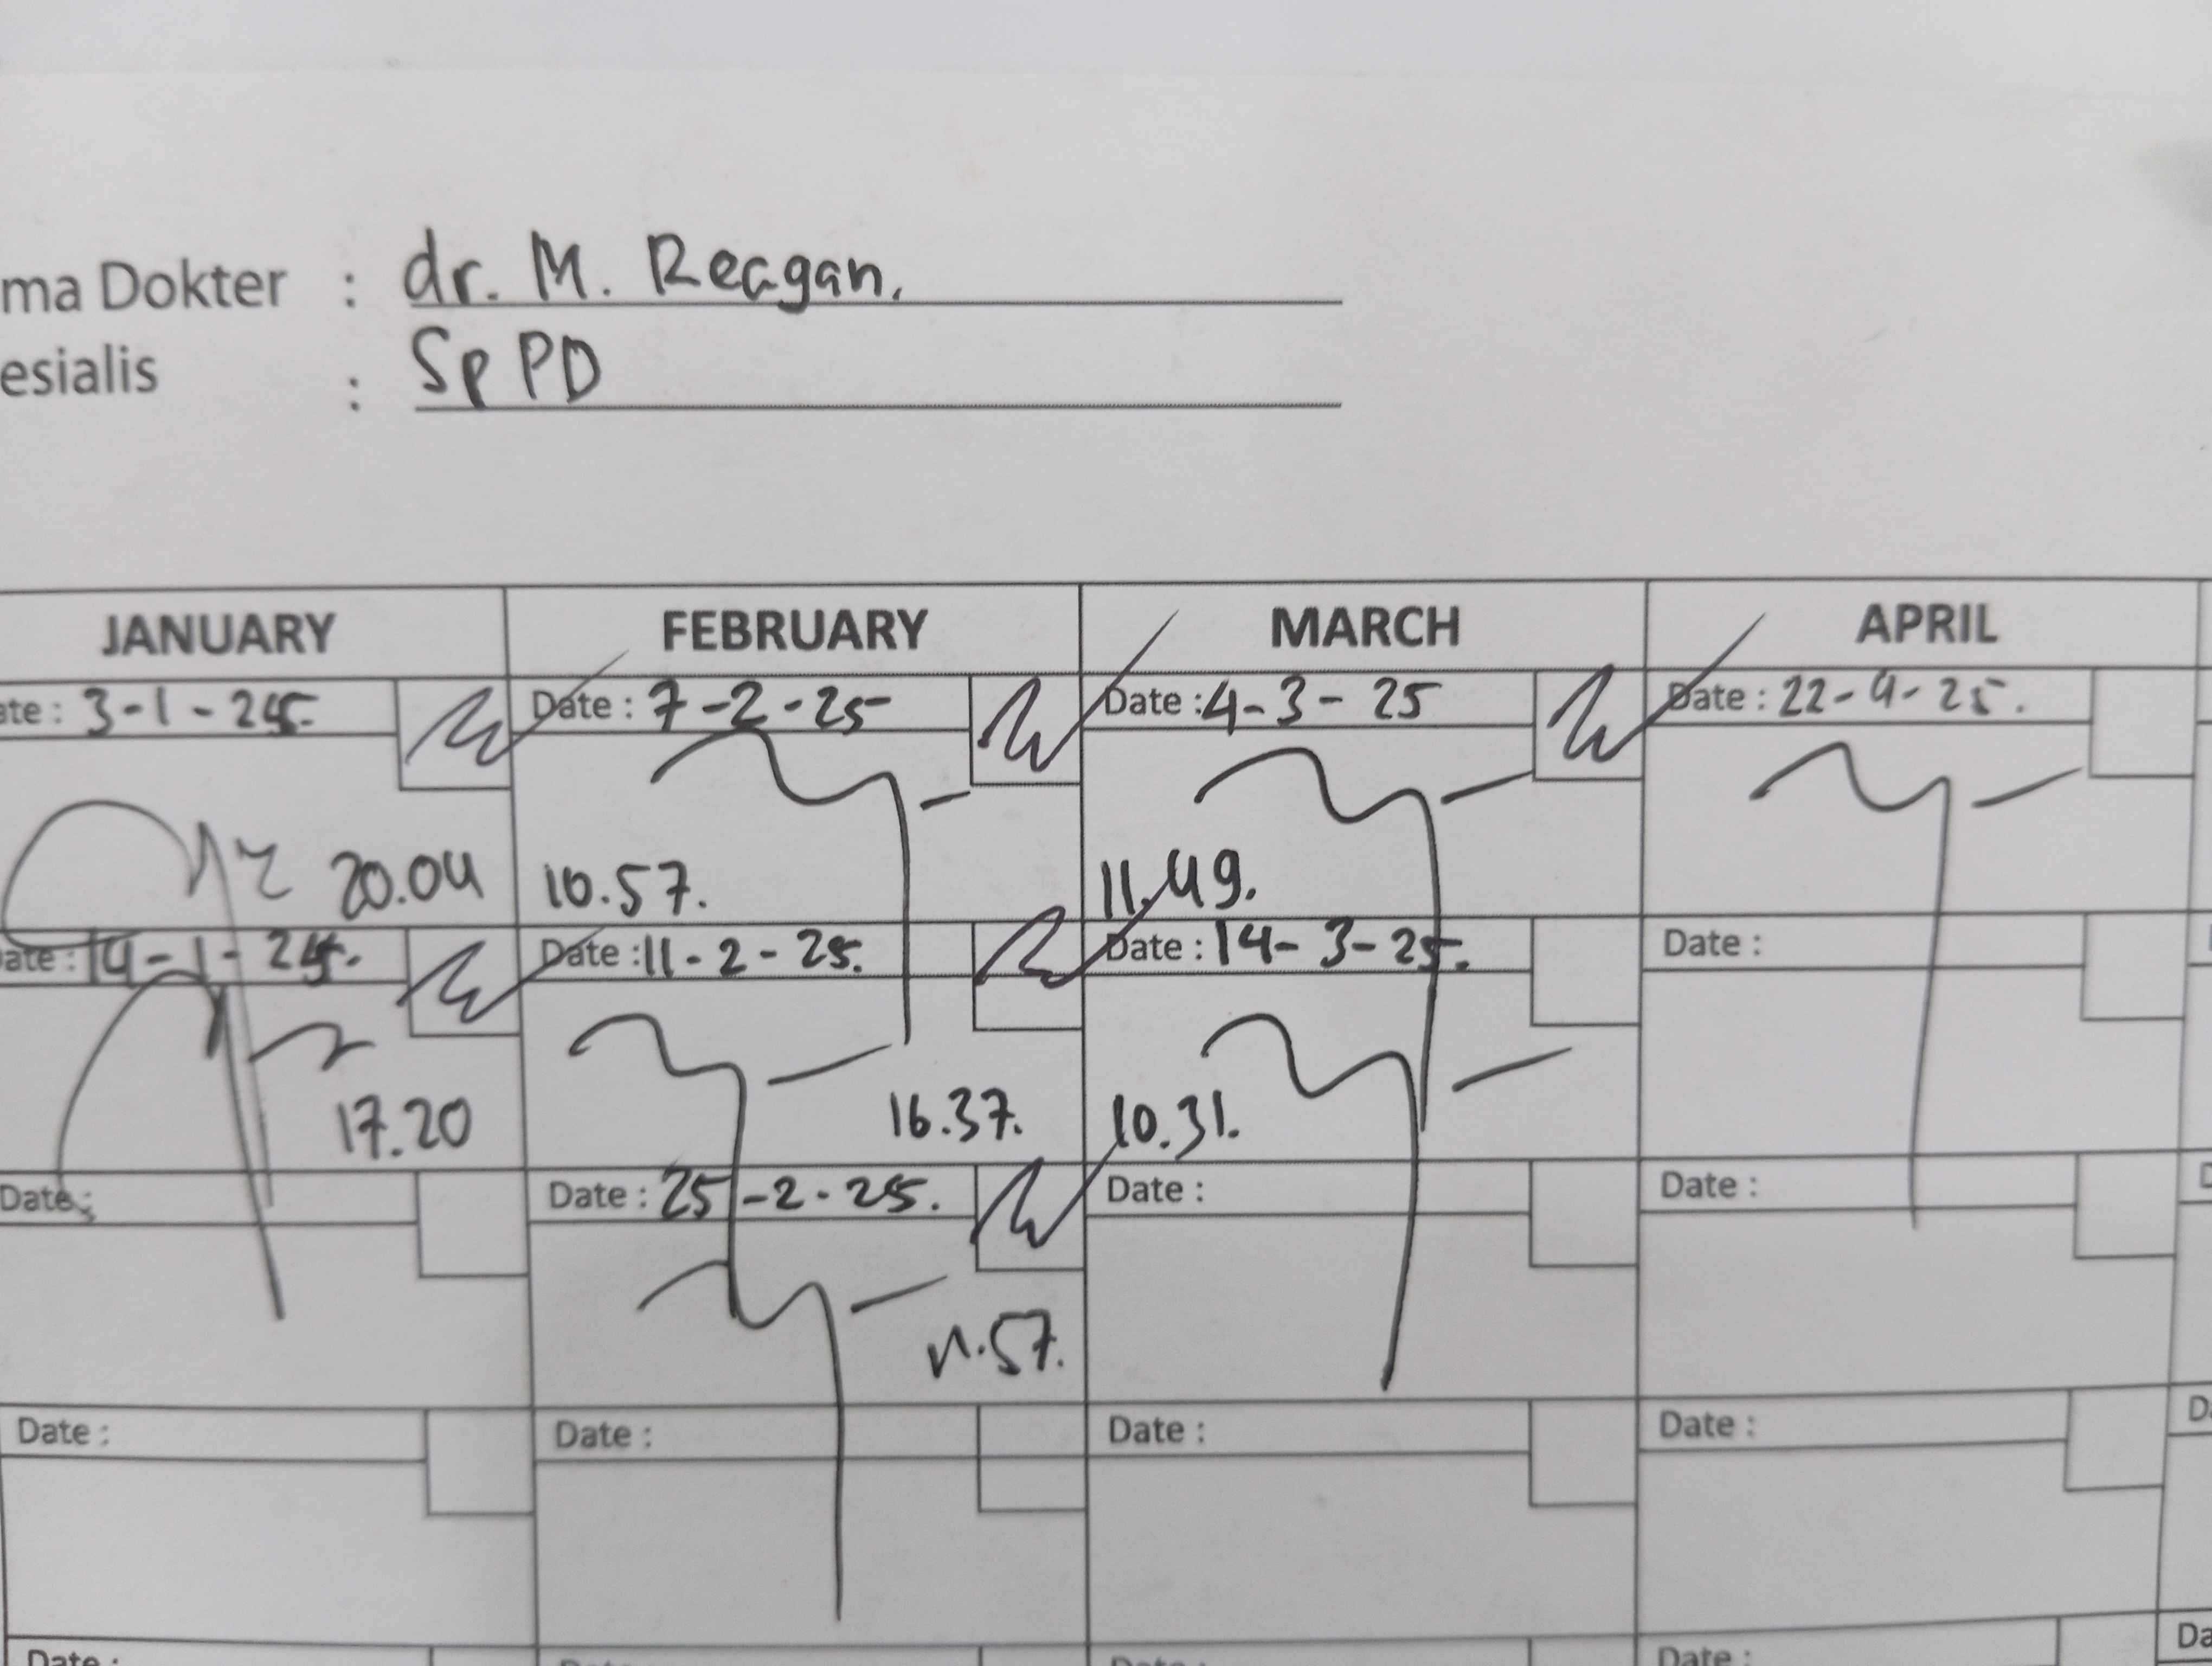 ma Dokter : dr. M. Reagan.
esialis : Sp PD
JANUARY FEBRUARY MARCH APRIL
ate : 3-1-25 Date : 7-2-25 Date : 4-3-25 Date : 22-4-25.
20.04 10.57. 11.49.
ate : 14-1-25. Date : 11-2-25. Date : 14-3-25. Date :
17.20 16.37. 10.31.
Date : Date : 25-2-25. Date : Date :
11.57.
Date : Date : Date : Date :
Date : Date : Date : Date :